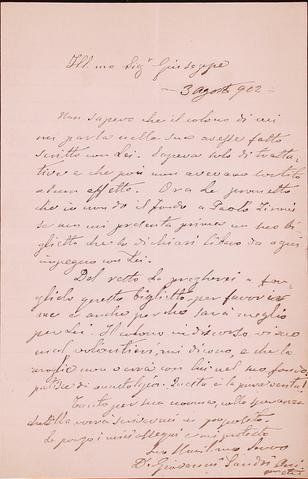 Ill.mo Sig.r Giuseppe
3 agosto 902
Non sapevo che il colono di cui
mi parla nella sua avesse fatto
scritto con Lei. Sapevo solo di tratta
tive e che poi non avevano sortito
alcun effetto. Ora Le prometto
che io non do il fondo a Paolo
se non mi presenta prima un suo bi
glietto che lo dichiari libero da ogni
impegno con Lei.
Del resto La pregherei a
questo biglietto per favorir
me e anche perché sarà meglio
per Lei. Il colono in discorso viene
mal volentieri, mi dicono, e che la
moglie non verrà con lui nel suo fondo
È la pura verità!
Tanto per sua norma, colla speranza
che Ella vorrà scrivermi in proposito.
La prego i miei ossequi e mi protesto
Suo Umilmo Servo
D. Giovanni Sandri